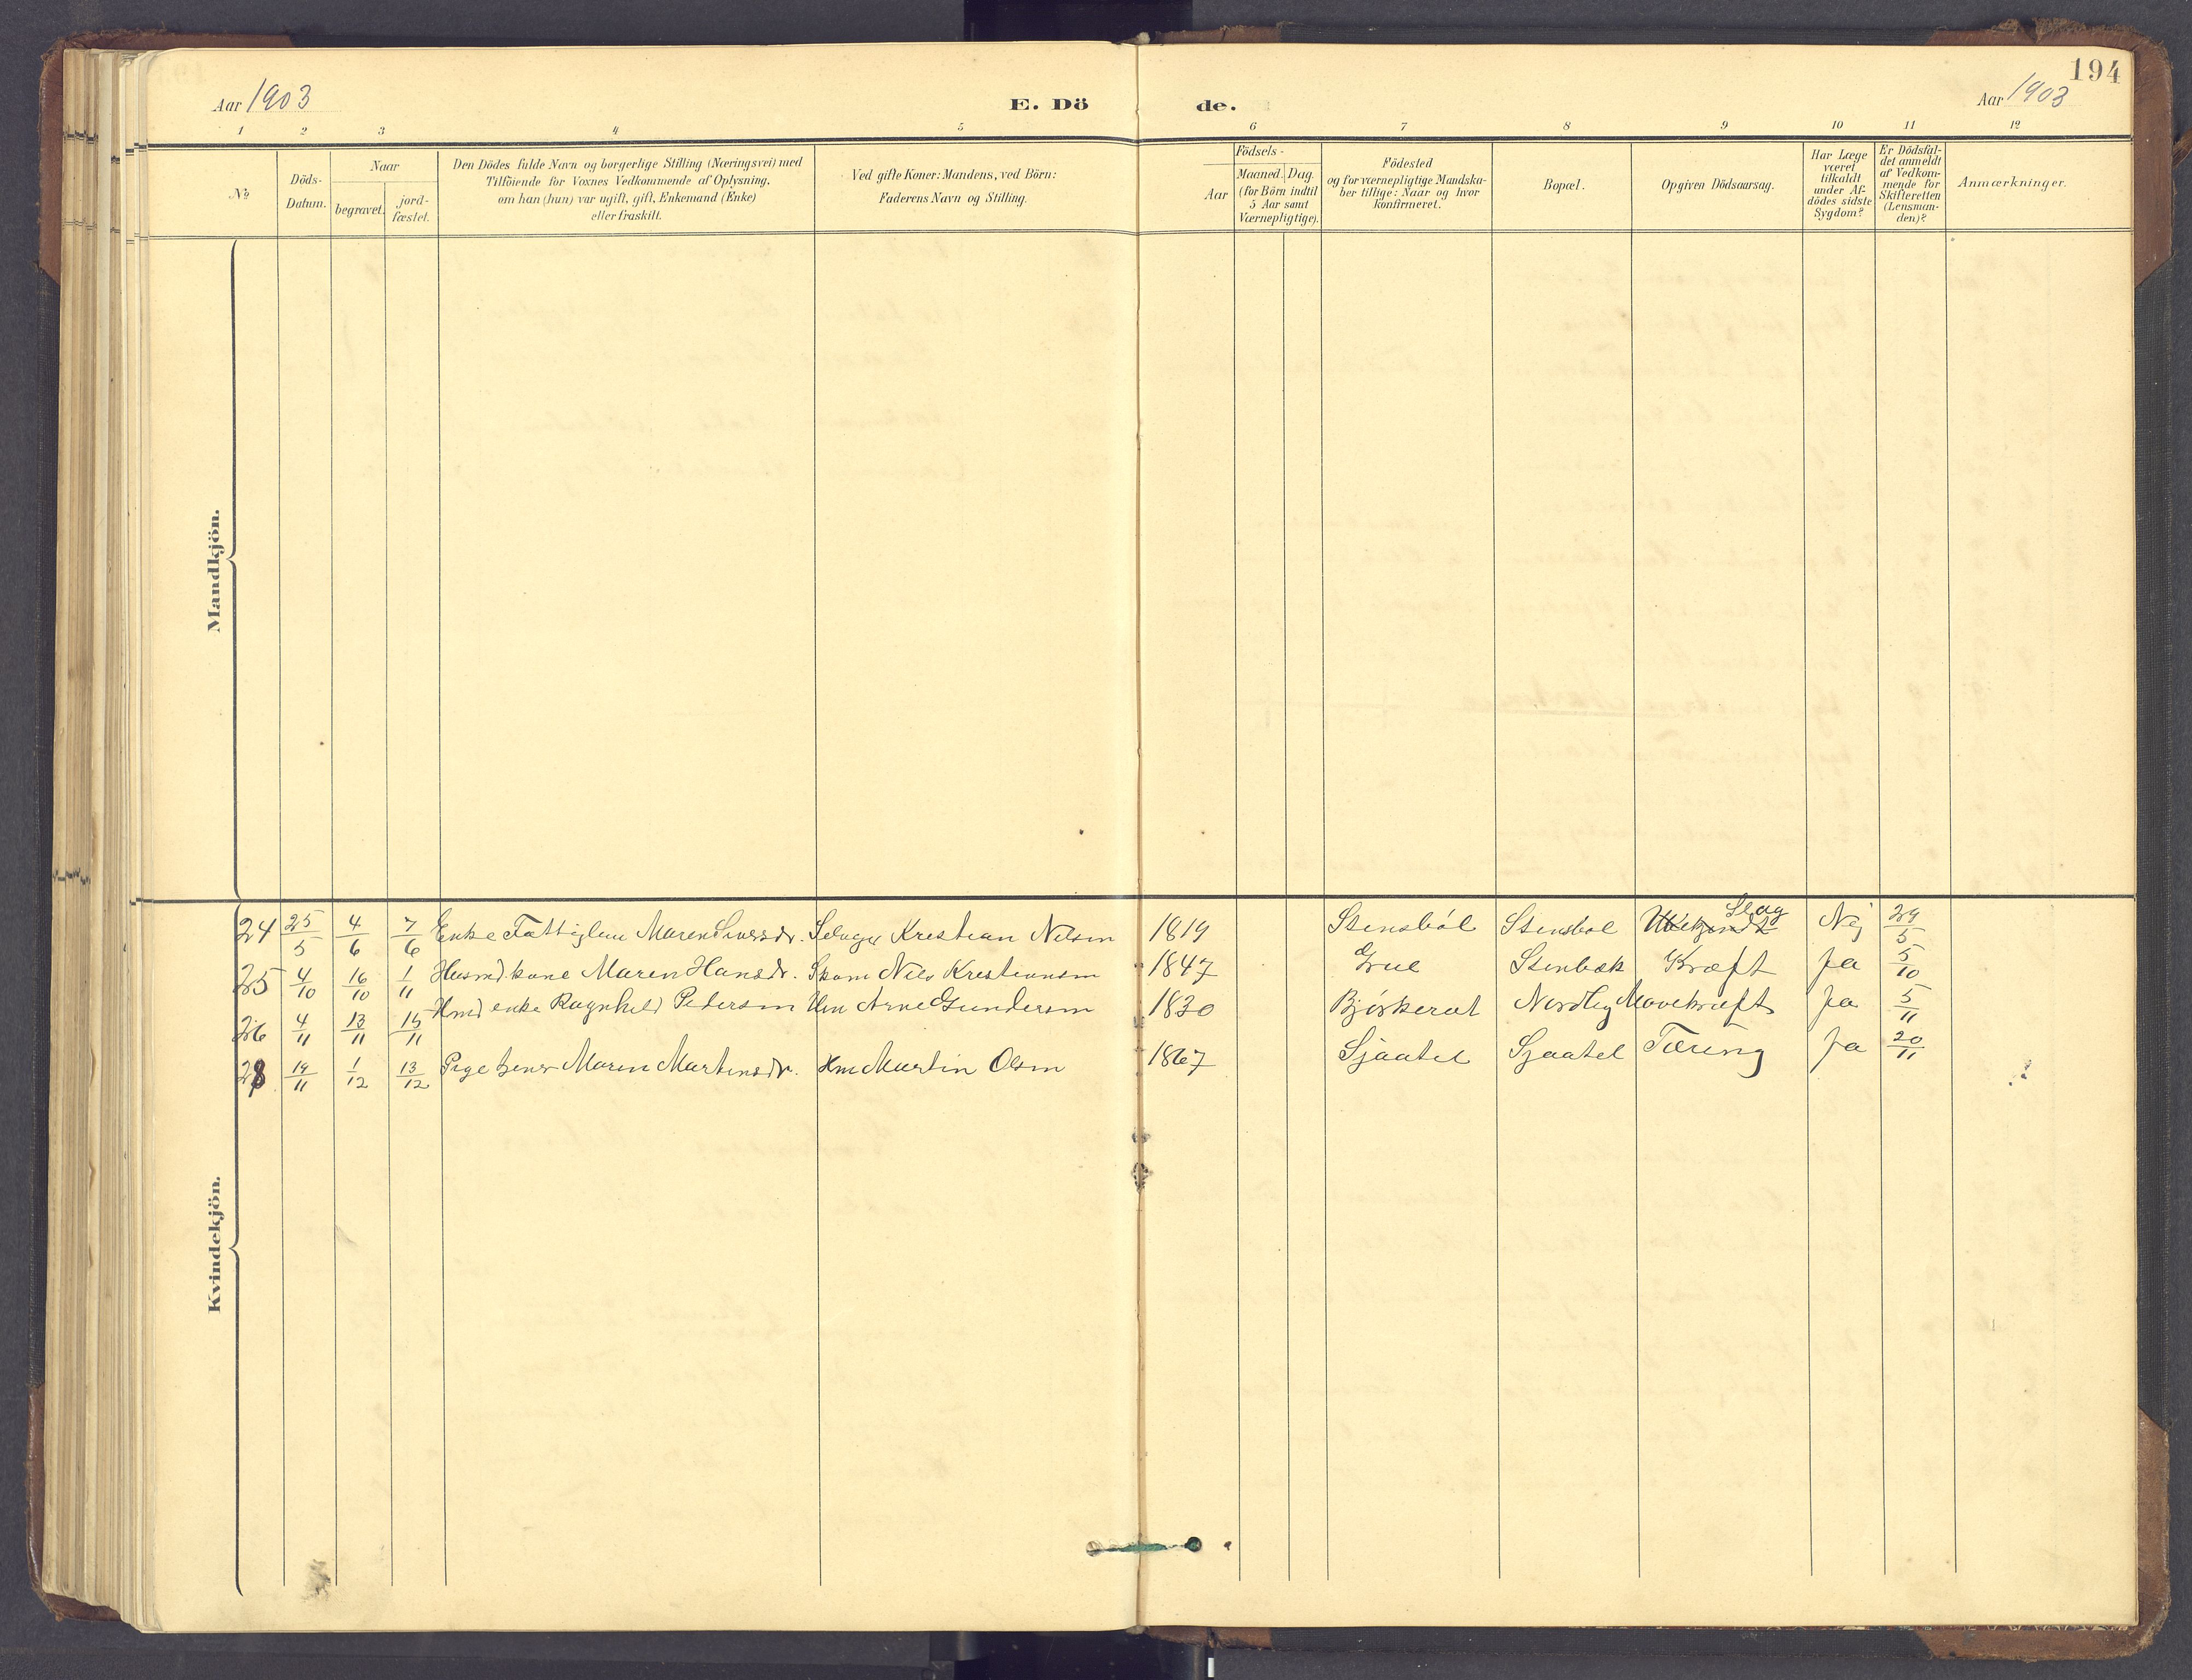 194
Aar 1903 E. Dö de. Aar 1903
1 2 3 4 5 6 7 8 9 10 11 12
No
Döds-
Datum.
Naar
begravet.
jord-
fæstet.
Den Dödes fulde Navn og borgerlige Stilling (Næringsvei) med
Tilföiende for Voxnes Vedkommende af Oplysning,
om han (hun) var ugift, gift, Enkemand (Enke)
eller fraskilt.
Ved gifte Koner: Mandens, ved Börn:
Faderens Navn og Stilling.
Födsels-
Aar
Maaned. Dag.
(for Börn indtil
5 Aar samt
Værnepligtige).
Födested
og for værnepligtige Mandska-
ber tillige: Naar og hvor
konfirmeret.
Bopæl.
Opgiven Dödsaarsag.
Har Læge
været
tilkaldt
under Af-
dödes sidste
Sygdom?
Er Dödsfal-
det anmeldt
af Vedkom-
mende for
Skifteretten
(Lensman-
den)?
Anmærkninger.
Mandkjön.
Kvindekjön.
Slag
24 25/5 4/6 7/6 Enke Fattiglem Maren Iversdr. Selveger Kristian Nilsen 1819 Stensböl Stensbol Ubekjendt Nej 29/5
25 4/10 16/10 1/11 Husmd.kone Maren Hansdr. Skom Nils Kristiansen 1847 Grue Stenbæk Kræft Ja 5/10
26 4/11 13/11 15/11 Hmd enke Ragnhild Pedersen Hm Arne Gundersen 1830 Björkerud Nordby Mavekræft Ja 5/11
28 19/11 1/12 13/12 Pige tjener Maren Martinsdr. Hm Martin Olsen 1867 Sjaatel Sjaatel Tæring Ja 20/11